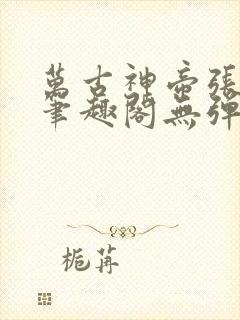 萬古神帝張
筆趣閣無彈
栀苒